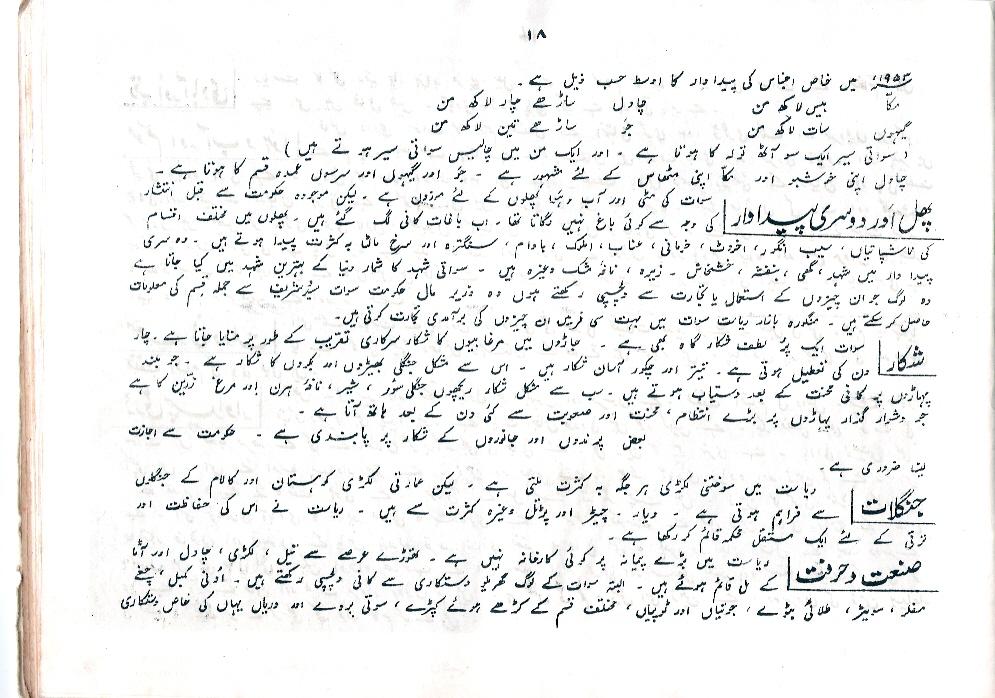 ۱۸
۱۹۵۳ء میں خاص اجناس کی پیداوار کا اوسط حسب ذیل ہے۔
مکا بیس لاکھ من چاول ساڑھے چار لاکھ من
گیہوں سات لاکھ من جَو ساڑھے تین لاکھ من
( سواتی سیر ایک سو آٹھ تولہ کا ہوتا ہے ۔ اور ایک من میں چالیس سواتی سیر ہوتے ہیں )
چاول اپنی خوشبو اور مکا اپنی مٹھاس کے لئے مشہور ہے ۔ جَو اور گیہوں اور سرسوں عمدہ قسم کا ہوتا ہے ۔
پھل اور دوسری پیداوار سوات کی مٹی اور آب و ہوا پھلوں کے لئے موزوں ہے ۔ لیکن موجودہ حکومت سے قبل انتشار
کی وجہ سے کوئی باغ نہیں لگاتا تھا ۔ اب باغات کافی لگ گئے ہیں ۔ پھلوں میں مختلف اقسام
کی ناشپاتیاں ، سیب انگور ، اخروٹ ، خرمانی ، عناب ، املوک ، بادام ، سنگترہ اور سرخ مالٹا بہ کثرت پیدا ہوتے ہیں ۔ دوسری
پیداوار میں شہد ، گھی ، بنفشہ ، خشخاش ۔ زیرہ ، نافۂ مشک وغیرہ ہیں ۔ سواتی شہد کا شمار دنیا کے بہترین شہد میں کیا جاتا ہے
وہ لوگ جو ان چیزوں کے استعمال یا تجارت سے دلچسپی رکھتے ہوں وہ وزیر مال حکومت سوات سیدو شریف سے جملہ قسم کی معلومات
حاصل کر سکتے ہیں ۔ منگورہ بازار ریاست سوات میں بہت سی فرمیں ان چیزوں کی برآمدی تجارت کرتی ہیں۔
شکار سوات ایک پُر لطف شکار گاہ بھی ہے ۔ جاڑوں میں مرغابیوں کا شکار سرکاری تقریب کے طور پر منایا جاتا ہے ۔ چار
دن کی تعطیل ہوتی ہے ۔ تیتر اور چکور آسان شکار ہیں ۔ اس سے مشکل جنگلی بھیڑوں اور بکروں کا شکار ہے ۔ جو بلند
پہاڑوں پر کافی محنت کے بعد دستیاب ہوتے ہیں ۔ سب سے مشکل شکار ریچھوں جنگلی سؤر ، شیر ، نافۂ ہرن اور مرغ زرّین کا ہے
جو دشوار گذار پہاڑوں پر بڑے انتظام ، محنت اور صعوبت سے کئی دن کے بعد ہاتھ آتا ہے ۔
بعض پرندوں اور جانوروں کے شکار پر پابندی ہے ۔ حکومت سے اجازت
لینا ضروری ہے ۔
جنگلات ریاست میں سوختنی لکڑی ہر جگہ بہ کثرت ملتی ہے ۔ لیکن عمارتی لکڑی کوہستان اور کالام کے جنگلوں
سے فراہم ہوتی ہے ۔ دیار ۔ چیڑ اور پڑتل وغیرہ کثرت سے ہیں ۔ ریاست نے اس کی حفاظت اور
ترقی کے لئے ایک مستقل محکمہ قائم کر رکھا ہے ۔
صنعت و حرفت ریاست میں بڑے پیمانہ پر کوئی کارخانہ نہیں ہے ۔ تھوڑے عرصے سے تیل ، لکڑی ، چاول اور آٹا
کے مل قائم ہوئے ہیں ۔ البتہ سوات کے لوگ گھریلو دستکاری سے کافی دلچسپی رکھتے ہیں ۔ اُونی کمبل ، چغے
مفلر ، سویٹر ، طلائی بٹوے ، جوتیاں اور ٹوپیاں ، مختلف قسم کے کڑھے ہوئے کپڑے ، سوتی بروے اور دریاں یہاں کی خاص دستکاری